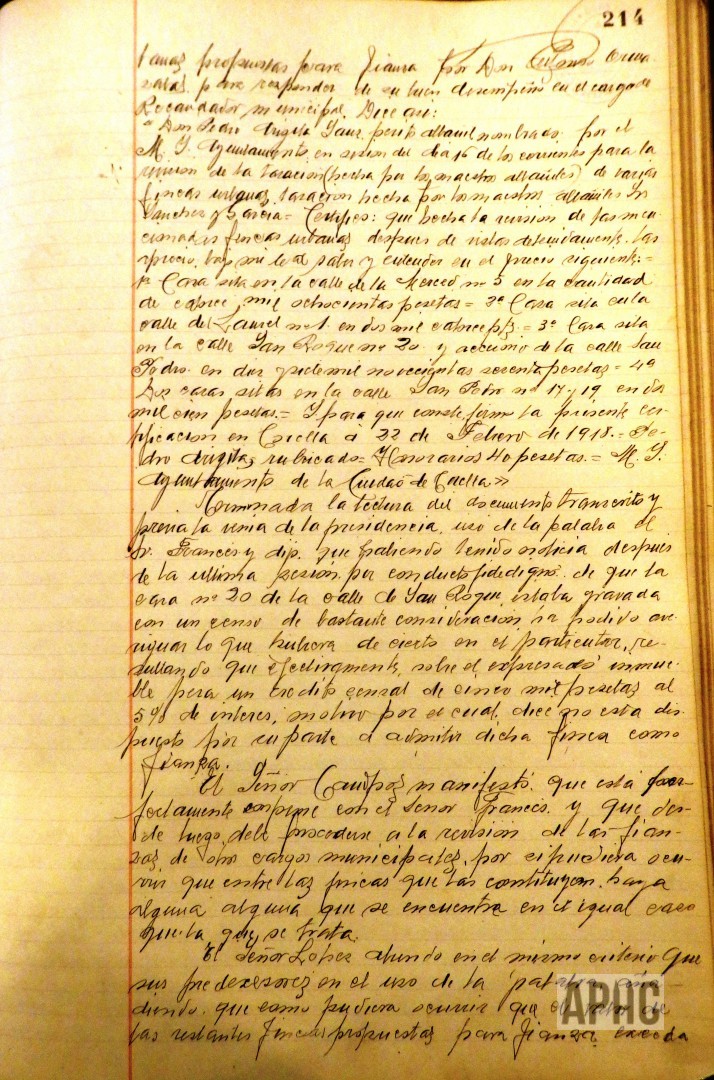 214
banas propuestas para fianza por Don
para responder de su buen desempeño en el cargo de
Recaudador municipal. Dice asi:
"Don Pedro Angita Sanz, perito albañil nombrado por el
M. I. Ayuntamiento, en sesion del dia 16 de los corrientes para la
revision de la tasacion (hecha por los maestros albañiles) de varias
fincas urbanas, tasacion hecha por los maestros albañiles Srs
Sanchez y Garcia = Certifico: que hecha la revision de las men-
cionadas fincas urbanas despues de vistas detenidamente, las
aprecio, bajo mi leal saber y entender en el precio siguiente: =
1ª Casa sita en la calle de la Merced nº 5 en la cantidad
de catorce mil ochocientas pesetas = 2ª Casa sita en la
calle del Laurel nº 1. en dos mil catorce pts. = 3ª Casa sita
en la calle San Roque nº 20 y accesorio de la calle San
Pedro en diez y siete mil novecientas sesenta pesetas = 4ª
Dos casas sitas en la calle San Pedro nº 17 y 19 en dos
mil cien pesetas. = Y para que conste, firmo la presente cer-
tificacion en Cuella á 22 de Febrero de 1918. = Pe-
dro Angita, rubricado = Honorarios 40 pesetas. = M. I.
Ayuntamiento de la Ciudad de Cuella»
Terminada la lectura del documento transcrito y
previa la venia de la presidencia, uso de la palabra el
Sr. Francés y dijo, que habiendo tenido noticia despues
de la ultima sesion, por conducto fidedigno, de que la
casa nº 20 de la calle de San Roque, estaba gravada
con un censo de bastante consideracion, ha podido ave-
riguar lo que hubiera de cierto en el particular, re-
sultando que efectivamente, sobre el expresado inmue-
ble pesa un credito censal de cinco mil pesetas al
5% de interes, motivo por el cual, dice no esta dis-
puesto por su parte a admitir dicha finca como
fianza.
El Señor Campos manifestó, que está per-
fectamente conforme con el Señor Francés y que, des-
de luego, debe procederse a la revision de las fian-
zas de otros cargos municipales, por si pudiera ocu-
rrir que entre las fincas que las constituyen, haya
alguna alguna que se encuentre en el igual caso
que la que se trata.
El Señor Lopez abundo en el mismo criterio que
sus predecesores en el uso de la palabra aña-
diendo, que como pudiera ocurrir que el valor de
las restantes fincas propuestas para fianza, exceda
APHC